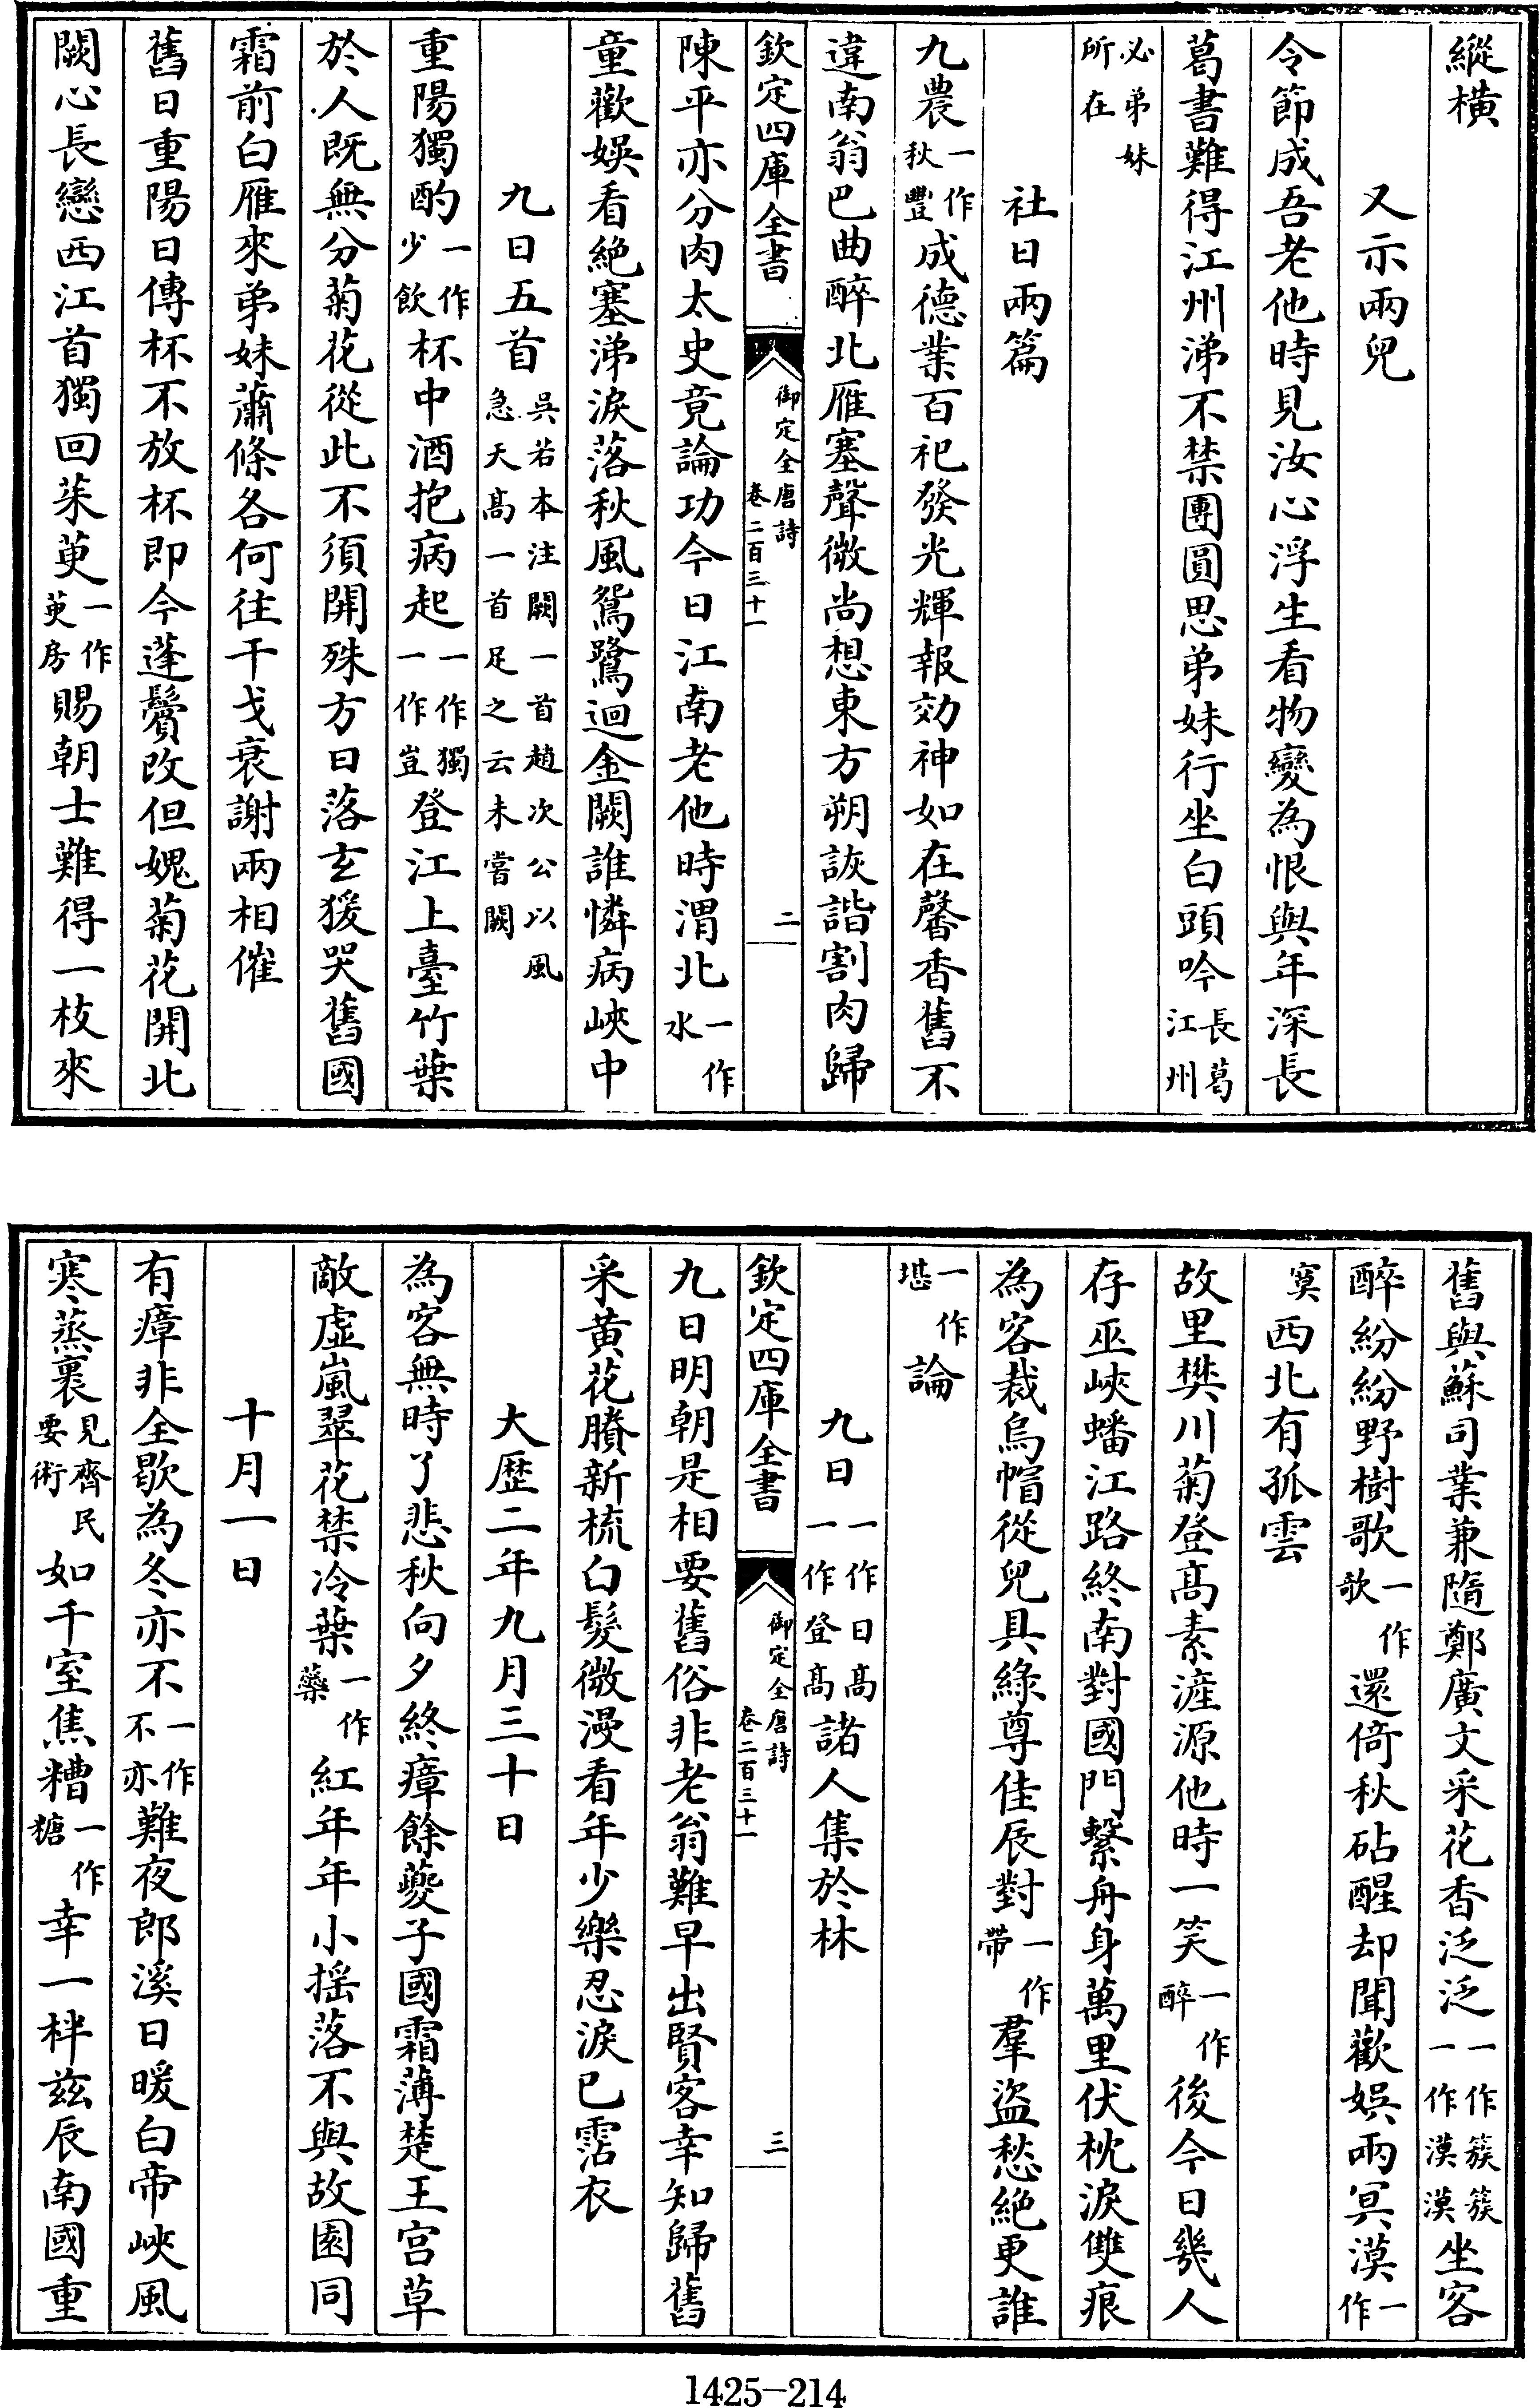 縱橫
又示兩兒
令節成吾老他時見汝心浮生看物變為恨與年深長
葛書難得江州涕不禁團圓思弟妹行坐白頭吟長葛江州
必弟妹所在
社日兩篇
九農一作秋豐成德業百祀發光輝報効神如在馨香舊不
違南翁巴曲醉北雁塞聲微尚想東方朔詼諧割肉歸
欽定四庫全書 御定全唐詩 卷二百三十一 二
陳平亦分肉太史竟論功今日江南老他時渭北一作水
童歡娛看絕塞涕淚落秋風鴛鷺迴金闕誰憐病峽中
九日五首吳若本注闕一首趙次公以風急天高一首足之云未嘗闕
重陽獨酌一作少飲杯中酒抱病起一作獨一作豈登江上臺竹葉
於人既無分菊花從此不須開殊方日落玄猨哭舊國
霜前白雁來弟妹蕭條各何往干戈衰謝兩相催
舊日重陽日傳杯不放杯即今蓬鬢改但媿菊花開北
闕心長戀西江首獨回茱萸一作萸房賜朝士難得一枝來
舊與蘇司業兼隨鄭廣文采花香泛泛一作簇簇一作漠漠坐客
醉紛紛野樹歌一作歌還倚秋砧醒却聞歡娛兩冥漠一作
寞西北有孤雲
故里樊川菊登高素滻源他時一笑一作醉後今日幾人
存巫峽蟠江路終南對國門繫舟身萬里伏枕淚雙痕
為客裁烏帽從兒具綠尊佳辰對一作帶羣盜愁絕更誰
一作堪論
九日一作日高一作登高諸人集於林
欽定四庫全書 御定全唐詩 卷二百三十一 三
九日明朝是相要舊俗非老翁難早出賢客幸知歸舊
采黃花賸新梳白髮微漫看年少樂忍淚已霑衣
大歷二年九月三十日
為客無時了悲秋向夕終瘴餘夔子國霜薄楚王宮草
敵虛嵐翠花禁冷葉一作藥紅年年小搖落不與故園同
十月一日
有瘴非全歇為冬亦不一作不亦難夜郎溪日暖白帝峽風
寒蒸裹見齊民要術如千室焦糟一作糖幸一柈茲辰南國重
1425-214